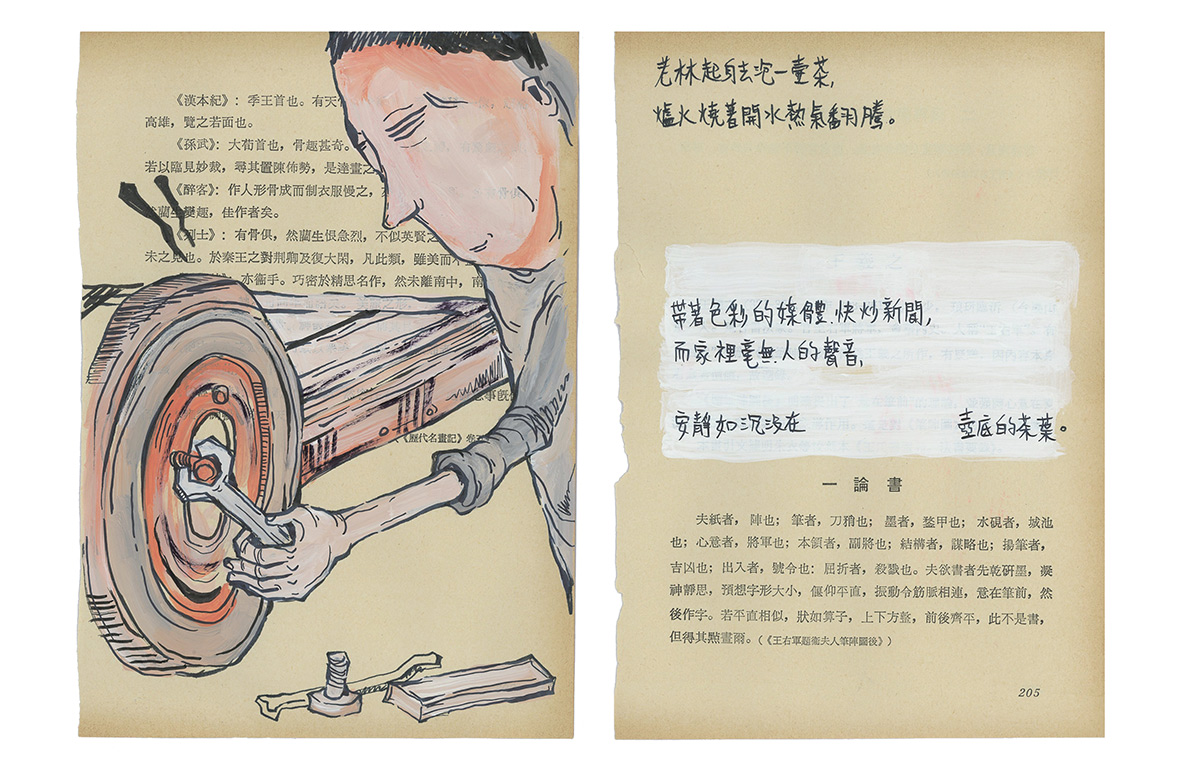 《漢本紀》：季王首也。有天
高雄，覽之若面也。
《孫武》：大荀首也，骨趣甚奇。
若以臨見妙裁，尋其置陳佈勢，是達畫之
《醉客》：作人形骨成而制衣服慢之，
蘭生變趣，佳作者矣。
《列士》：有骨俱，然蘭生恨急烈，不似英賢之
未之見也。於秦王之對荊卿及復大閑，凡此類，雖美而不
亦衞手。巧密於精思名作，然未離南中，南
《歷代名畫記》卷
老林起身去泡一壺茶，
爐火燒著開水熱氣翻騰。
帶著色彩的媒體快炒新聞，
而家裡毫無人的聲音，
安靜如沉沒在 壺底的茶葉。
一 論 書
夫紙者，陣也；筆者，刀矟也；墨者，鍪甲也；水硯者，城池
也；心意者，將軍也；本領者，副將也；結構者，謀略也；揚筆者，
吉凶也；出入者，號令也：屈折者，殺戮也。夫欲書者先乾研墨，凝
神靜思，預想字形大小，偃仰平直，振動令筋脈相連，意在筆前，然
後作字。若平直相似，狀如算子，上下方整，前後齊平，此不是書，
但得其點畫爾。（《王右軍題衞夫人筆陣圖後》）
205